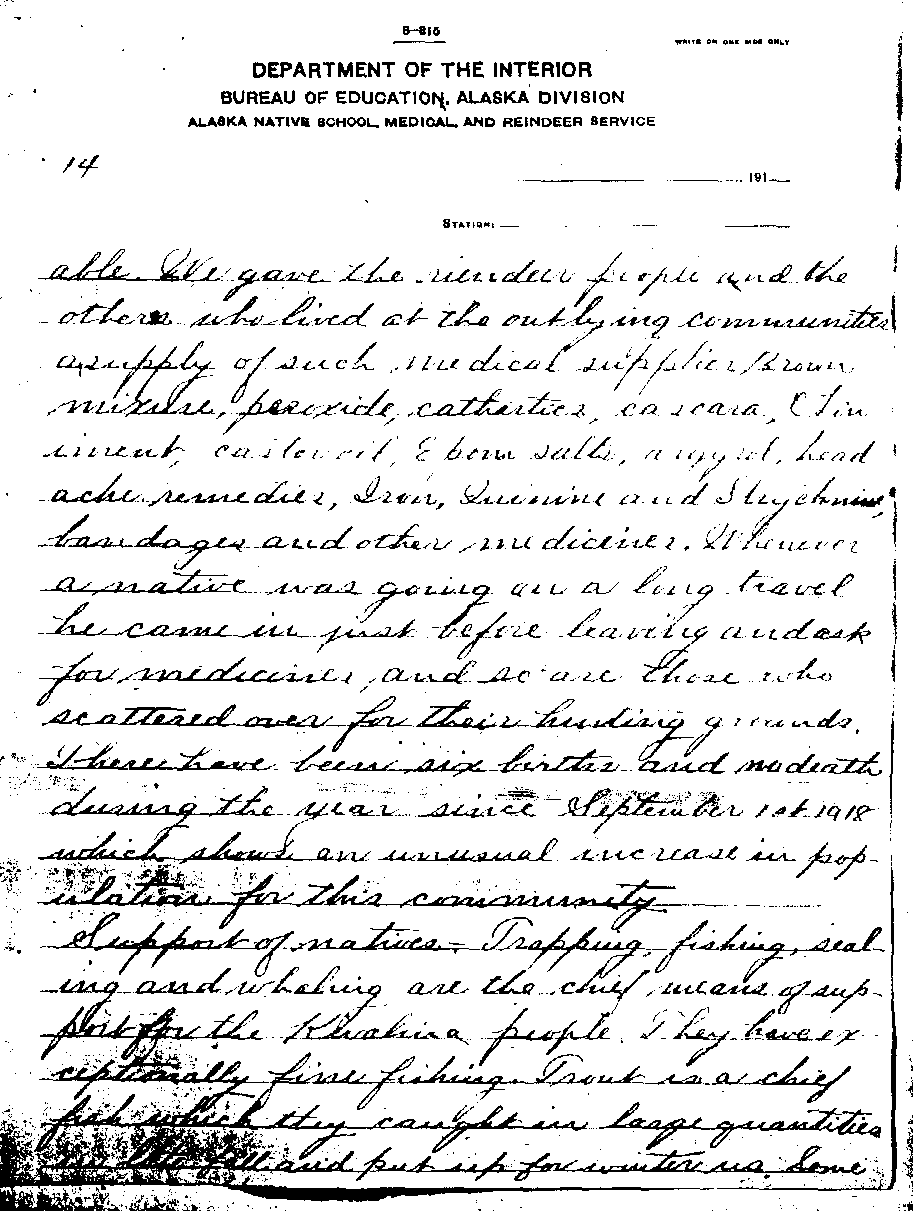 8-815
WRITE ON ONE SIDE ONLY
DEPARTMENT OF THE INTERIOR
BUREAU OF EDUCATION, ALASKA DIVISION
ALASKA NATIVE SCHOOL, MEDICAL, AND REINDEER SERVICE
14
191
STATION:
able. We gave the riendeer people and the
others who lived at the outlying communities
a supply of such medical supplies, Brown
mixure, peroxide, cathertics, cascara, Clin
iment, castor oil, Epom salts, argyrol, head
ache remedies, Iron, Quinine and Strychnine,
bandages and other medicines. Whenever
a native was going on a long travel
he came in just before leaving and ask
for medicines, and so are those who
scattered over for their hunting grounds.
There have been six births and no death
during the year since September 1st 1918
which shows an unusual increase in pop-
ulation for this community
Support of natives - Trapping, fishing, seal
ing and whaling are the chief means of sup-
port for the Kivalina people. They have ex
ceptionally fine fishing. Trout is a chief
fish which they caught in large quantities
fall and put up for winter us. Some